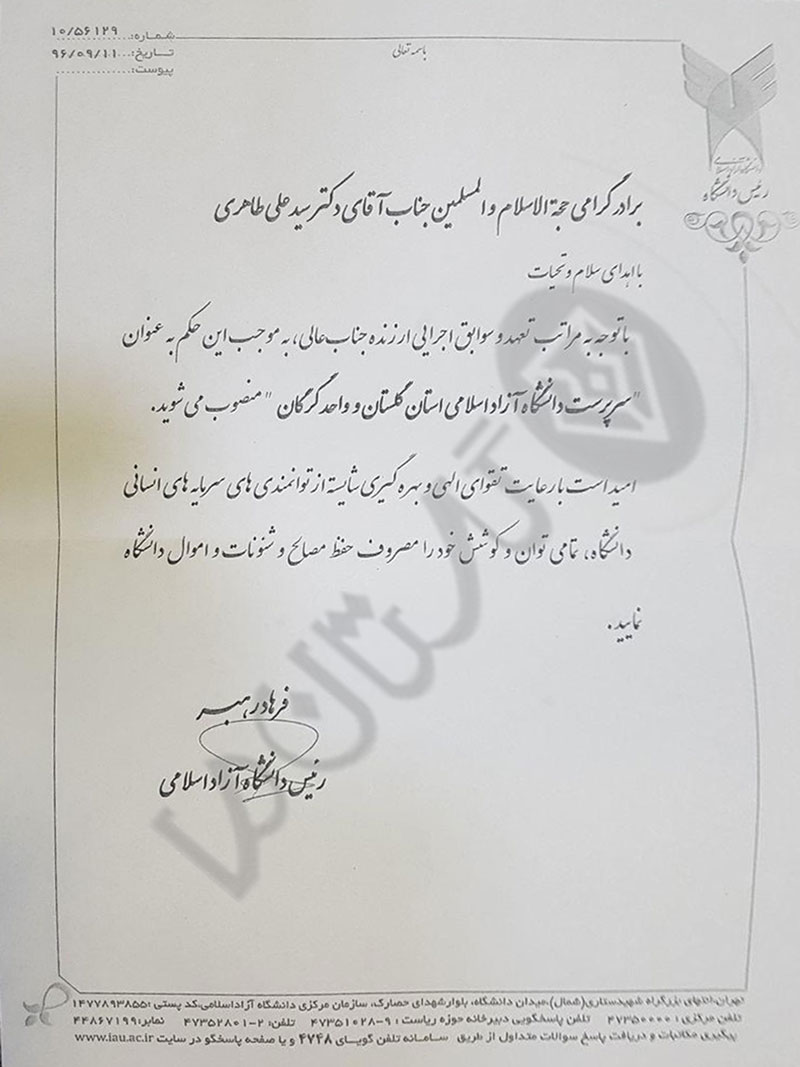 شماره: ۱۰/۵۶۱۲۹
تاریخ: ۹۶/۰۹/۱۱
پیوست:
باسمه تعالی
دانشگاه آزاد اسلامی
رئیس دانشگاه
برادر گرامی حجة الاسلام و المسلمین جناب آقای دکتر سید علی طاهری
با اهدای سلام و تحیات
با توجه به مراتب تعهد و سوابق اجرایی ارزنده جناب عالی، به موجب این حکم به عنوان
"سرپرست دانشگاه آزاد اسلامی استان گلستان و واحد گرگان" منصوب می شوید.
امید است با رعایت تقوای الهی و بهره گیری شایسته از توانمندی های سرمایه های انسانی
دانشگاه، تمامی توان و کوشش خود را مصروف حفظ مصالح و شئونات و اموال دانشگاه
نمایید.
فرهاد رهبر
رئیس دانشگاه آزاد اسلامی
گلستان ما
تهران، انتهای بزرگراه شهید ستاری (شمال)، میدان دانشگاه، بلوار شهدای حصارک، سازمان مرکزی دانشگاه آزاد اسلامی، کد پستی: ۱۴۷۷۸۹۳۸۵۵
تلفن مرکزی: ۴۷۳۵۰۰۰۰ تلفن پاسخگویی دبیرخانه حوزه ریاست: ۹-۴۷۳۵۱۰۲۸ تلفن: ۲-۴۷۳۵۲۸۰۱ نمابر: ۴۴۸۶۷۱۹۹
پیگیری مکاتبات و دریافت پاسخ سوالات متداول از طریق سامانه تلفن گویای ۴۷۴۸ و یا صفحه پاسخگو در سایت www.iau.ac.ir